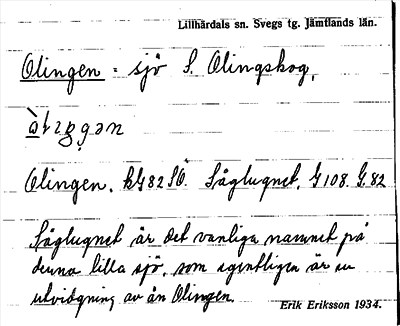 Lillhärdals sn. Svegs tg. Jämtlands län.
Olingen = sjö S. Olingskog,
Olingen. kG82SO. Sågluqnet, G108. G.82
Sågluqnet är det vanliga namnet på
denna lilla sjö, som egentligen är en
utvidgning av ån Olingen.
Erik Eriksson 1934.